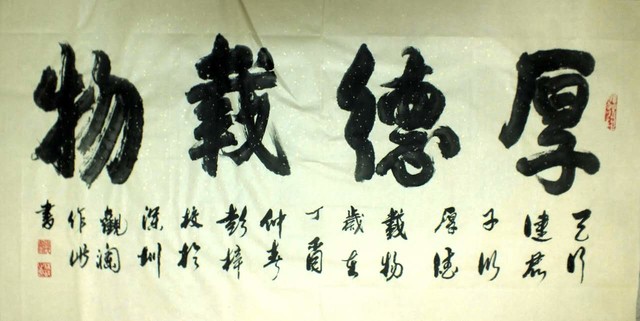 厚德載物
天行
健君
子以
厚德
載物
歲在
丁酉
仲春
彭梓
於
深圳
觀瀾
作此
書